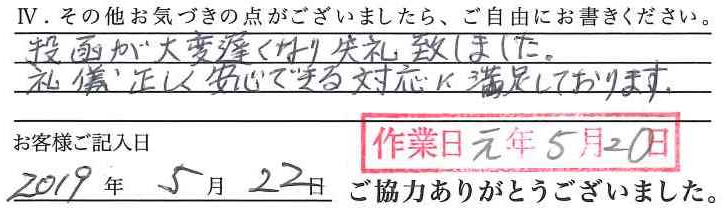 Ⅳ. その他お気づきの点がございましたら、ご自由にお書きください。
投函が大変遅くなり失礼致しました。
礼儀正しく安心できる対応に満足しております。
お客様ご記入日
作業日元年5月20日
2019年5月22日
ご協力ありがとうございました。